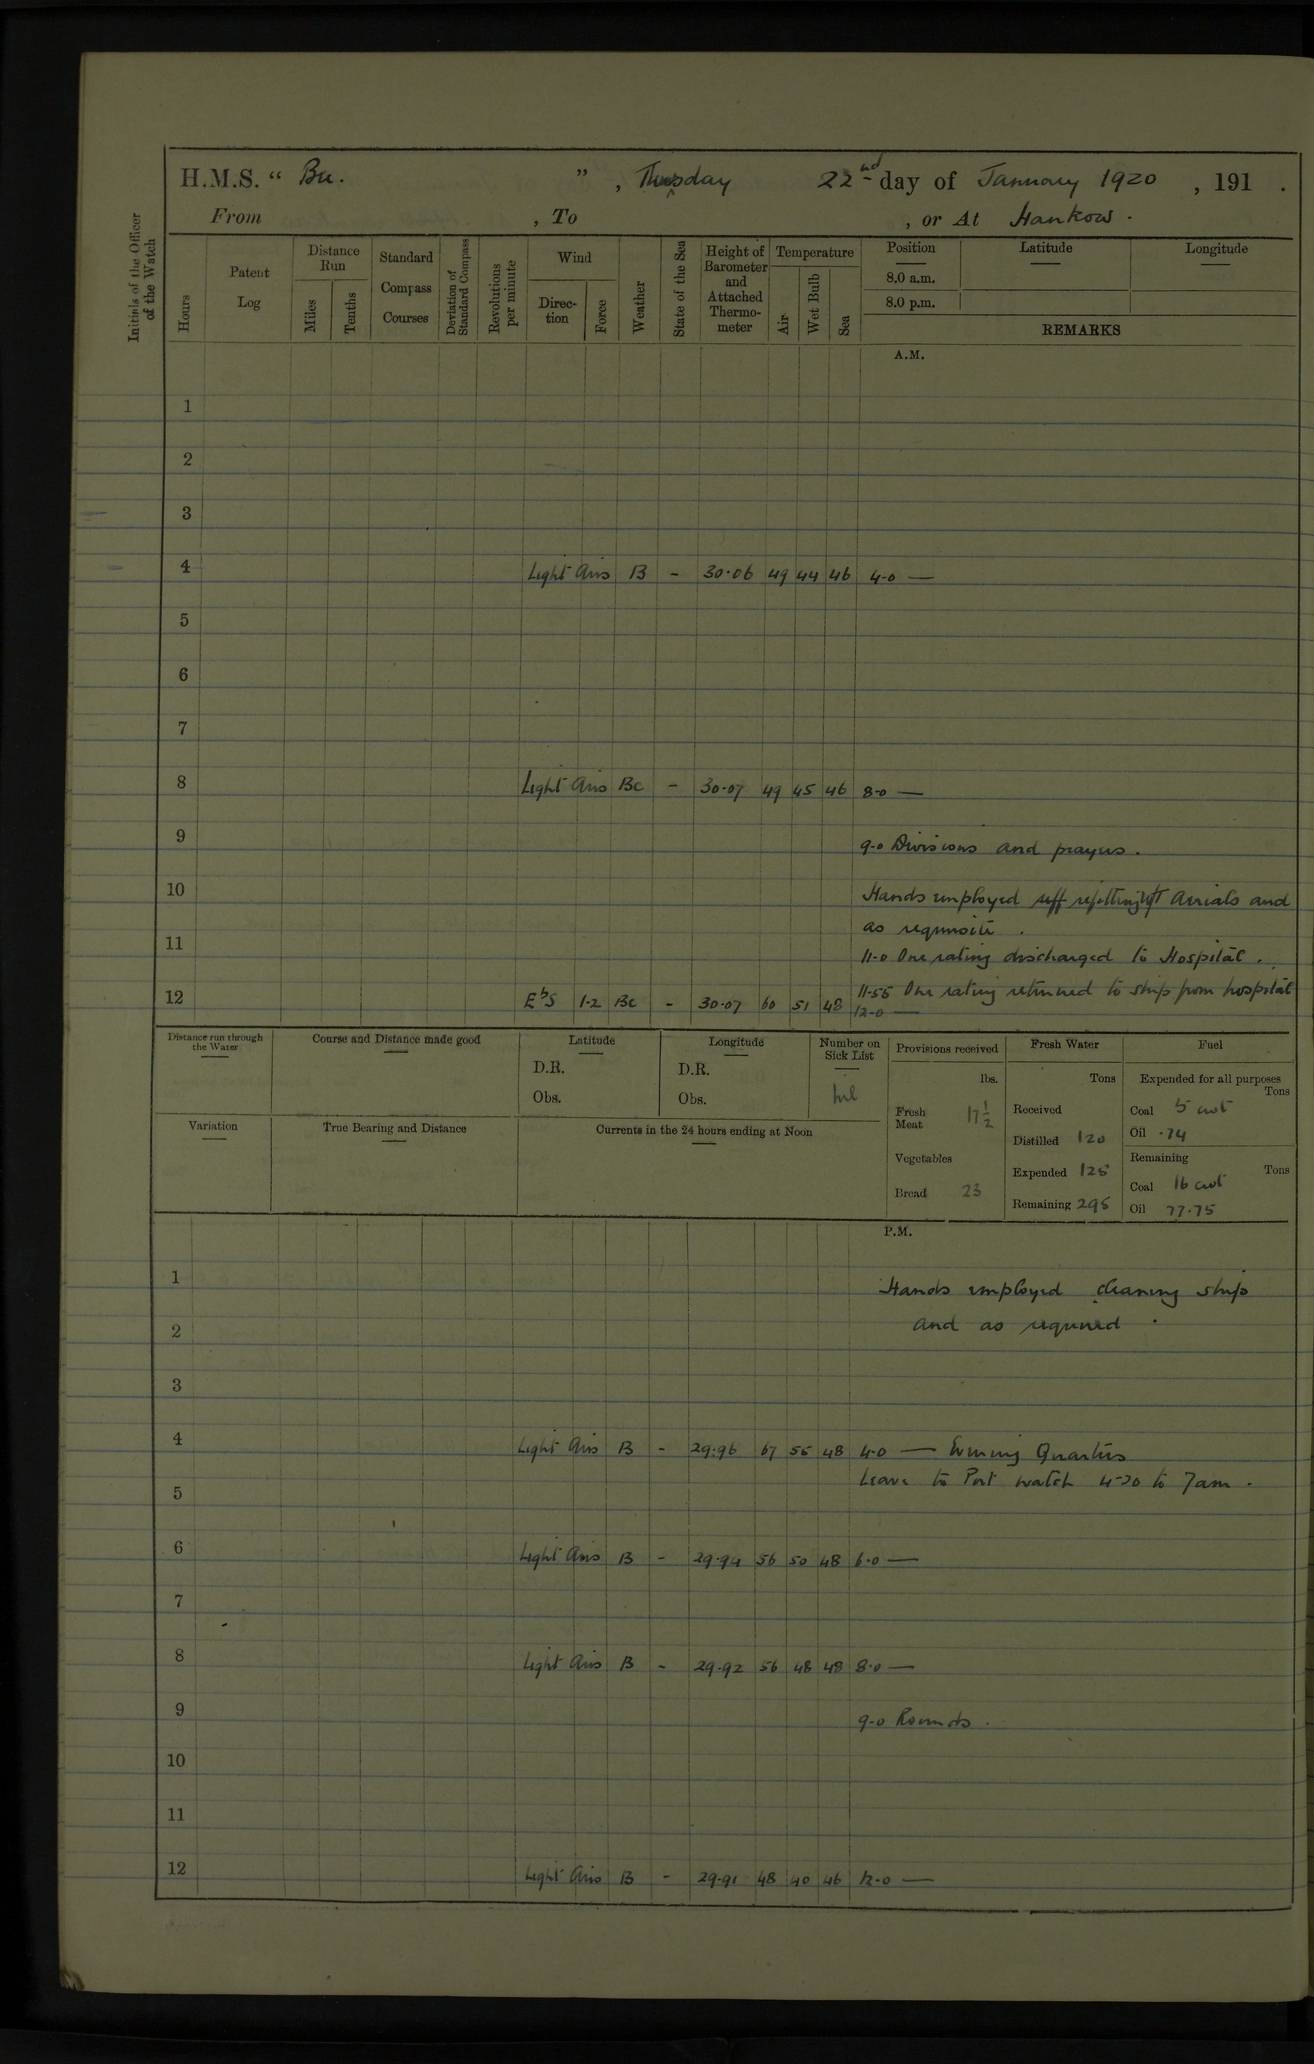 H.M.S. " Bee. " , Thursday 22nd day of January 1920 , 191 .
From , To , or At Hankow .
Initials of the Officer of the Watch
Hours
Patent Log
Distance Run
Miles
Tenths
Standard Compass Courses
Deviation of Standard Compass
Revolutions per minute
Wind
Direc-tion
Force
Weather
State of the Sea
Height of Barometer and Attached Thermo-meter
Temperature
Air
Wet Bulb
Sea
Position Latitude Longitude
8.0 a.m.
8.0 p.m.
REMARKS
A.M.
1
2
3
4 Light Airs B - 30.06 49 44 46 4-0 —
5
6
7
8 Light Airs Bc - 30.07 49 45 46 8-0 —
9 9-0 Divisions and prayers .
10 Hands employed refitting W/T Aerials and
as requisite .
11 11-0 One rating discharged to Hospital .
11-55 One rating returned to ship from hospital
12 EbS 1-2 Bc - 30.07 60 51 48 12-0 —
Distance run through the Water
Course and Distance made good
Latitude
D.R.
Obs.
Longitude
D.R.
Obs.
Number on Sick List
Nil
Provisions received
lbs.
Fresh Meat 17 1/2
Vegetables
Bread 23
Fresh Water
Tons
Received
Distilled 120
Expended 125
Remaining 295
Fuel
Expended for all purposes
Tons
Coal 5 cwt
Oil .74
Remaining
Tons
Coal 16 cwt
Oil 77.75
Variation
True Bearing and Distance
Currents in the 24 hours ending at Noon
P.M.
1 Hands employed cleaning ship
2 and as required .
3
4 Light Airs B - 29.96 67 55 48 4-0 — Evening Quarters
Leave to Port watch 4-30 to 7am .
5
6 Light Airs B - 29.94 56 50 48 6-0 —
7
8 Light Airs B - 29.92 56 48 48 8-0 —
9 9-0 Rounds .
10
11
12 Light Airs B - 29.91 48 40 46 12-0 —